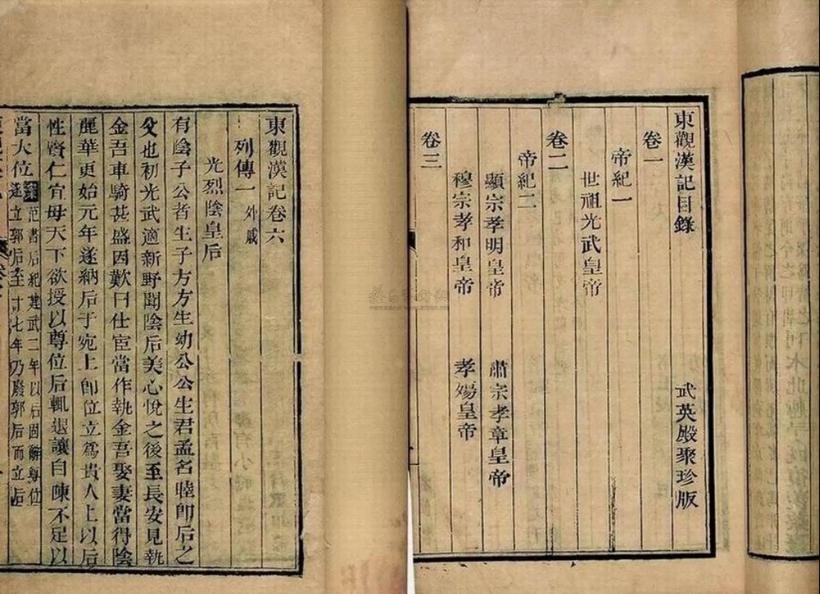 東觀漢記目錄 武英殿聚珍版
卷一
帝紀一
世祖光武皇帝
卷二
帝紀二
顯宗孝明皇帝 肅宗孝章皇帝
穆宗孝和皇帝 孝殤皇帝
卷三
東觀漢記卷六
列傳一 外戚
光烈陰皇后
有陰子公者生子方方生幼公公生君孟名睦卽后之
父也初光武適新野聞陰后美心悅之後至長安見執
金吾車騎甚盛因歎曰仕宦當作執金吾娶妻當得陰
麗華更始元年遂納后于宛上卽位立爲貴人上以后
性賢仁宜母天下欲授以尊位后輒退讓自陳不足以
當大位 案范書后紀建武二年以后固辭尊位
遂立郭后至十七年乃廢郭后而立后